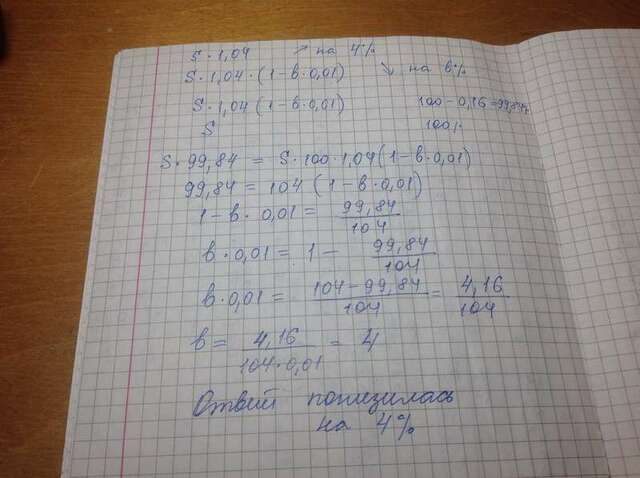 S·1,04 ↗ на 4%
S·1,04·(1-в·0,01) ↘ на в%
S·1,04(1-в·0,01) 100-0,16=99,84%
S 100%
S·99,84 = S·100·1,04(1-в·0,01)
99,84 = 104 (1-в·0,01)
1-в·0,01 = 99,84/104
в·0,01 = 1 - 99,84/104
в·0,01 = 104-99,84/104 = 4,16/104
в = 4,16/104·0,01 = 4
Ответ понизилась
на 4%